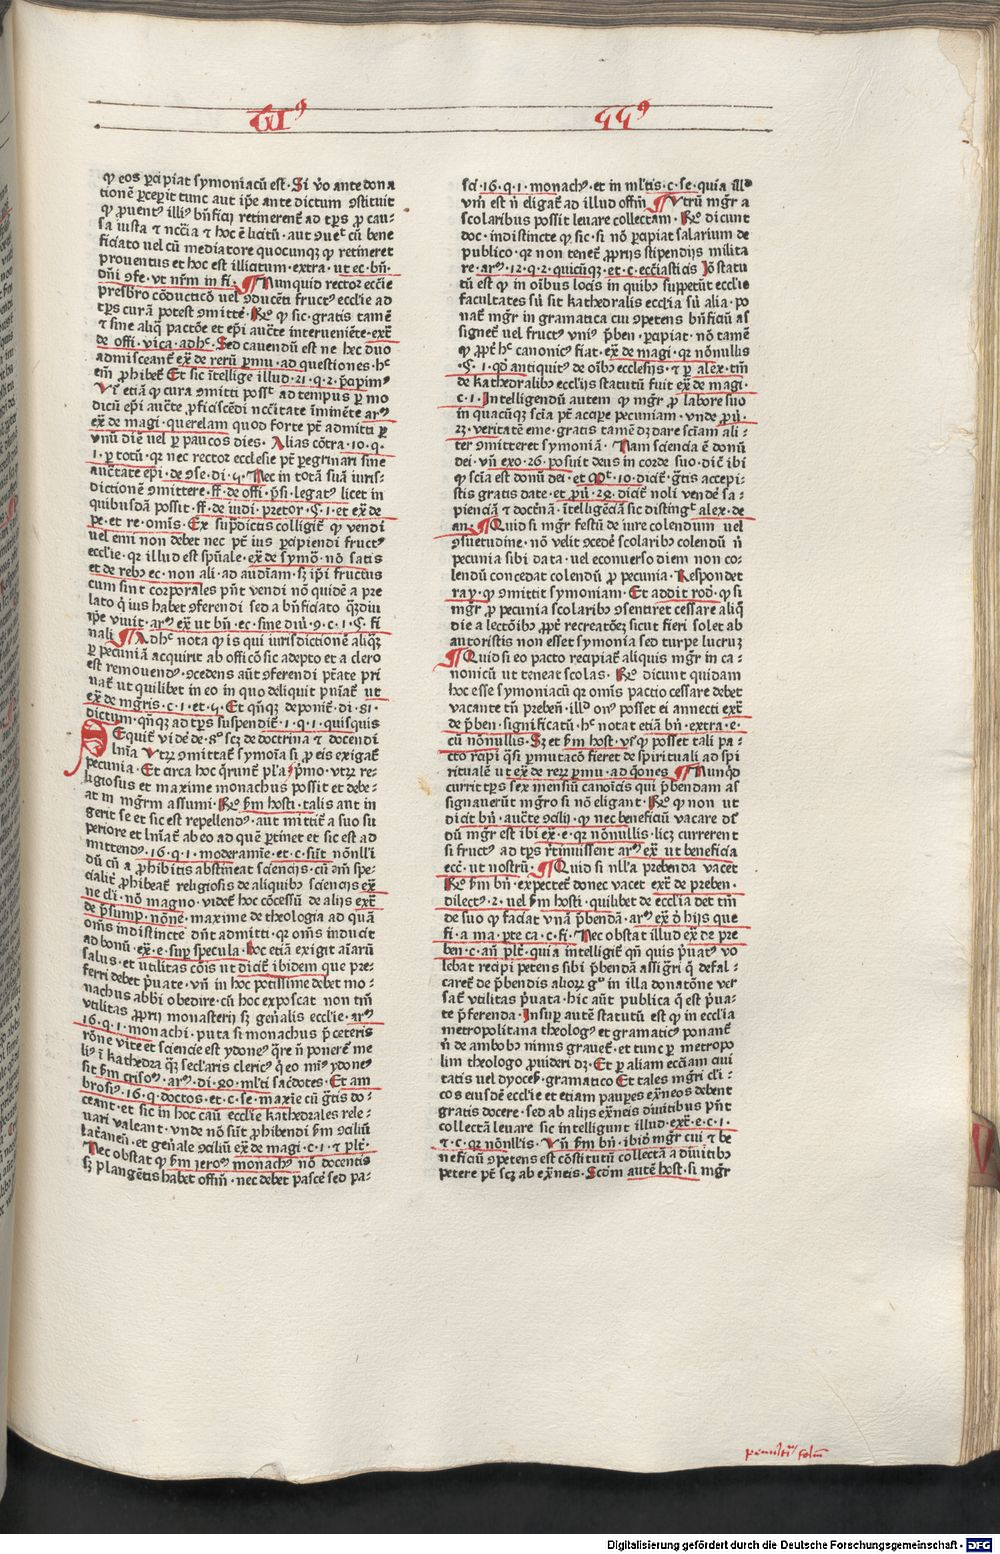 ꝙ eos ꝑcipiat symoniacū est. Si ꝟo ante dona
tionē ꝑceperit tunc aut ip̄e ante dictum ꝯstituit
sa iusta ⁊ nccīa ⁊ hoc ē licitū. aut ꝯuēt cū bene
ficiato uel cū mediatore quocunqꝫ ꝙ retineret
prouentus et hoc est illicitum. extra. ut ec. bn̄.
dn̄i ꝯfe. vt nr̄m in fi. ¶ Nunquid rector ecclīe
presbro cōducticō vel ꝯducēti fructꝰ ecclīe ad
tp̄s curā potest ꝯmittē. Rͦ ꝙ sic. gratis tamē
⁊ sine aliq̄ pactōe et ep̄i auctē interueniēte. exͣ
de offi. vica. ad hͨ. Sed cauendū est ne hec duo
admisceant̄ ex̄ de rerū ꝑmu. ad questiones. hͨ
em̄ ꝓhibet̄ Et sic ītellige illud. 21. q. 2. p̄apimꝰ
dicū ep̄i auctē ꝓficiscēdi nccītate īminēte arꝰ
ex̄ de magi. querelam quod forte pt̄ admitti ꝑ
vnū diē uel ꝑ paucos dies. Alias cōtra. 10. q.
1. ꝑ totū. qꝛ nec rector ecclesie pt̄ ꝑegrinari sine
auctate ep̄i. de ꝯse. di. 5. Nec in totā suā iuris⸗
dictionē ꝯmittere. ff. de offi. p̄si. legatꝰ licet in
quibusdā possit. ff. de iudi. pretor. ¶. 1. et ex̄ de
pe. et re. om̄is. Ex sup̄dictis colligit̄ ꝙ vendi
uel emi non debet nec pt̄ ius ꝑcipiendi fructꝰ
ecclīe. qꝛ illud est spūale. ex̄ de symō. nō satis
et de rebꝰ ec. non ali. ad audiam. sꝫ ip̄i fructus
cum sint corporales pn̄t vendi nō quidē a pre
lato q̄ ius habet ꝯferendi sed a bn̄ficiato qꝫdiu
ip̄e viuit. arꝰ ex̄ ut bn̄. ec. sine diū. ꝯ. c. 1. ¶. fi
nali ¶ Ad hͨ nota ꝙ is qui iurisdictionē aliqꝫ
ꝑ pecuniā acquirit ab officō sic adepto et a clero
est remouendꝰ. ꝯcedens aūt ꝯferendi ptāte pri
uat̄ ut quilibet in eo in quo deliquit puniat̄ ut
ex̄ de mgr̄is. c. 1. et 5. Et qn̄qꝫ deponit̄. di. 81.
dictum. qn̄qꝫ ad tp̄s suspendit̄. 1. q. 1. quisquis
Sequit̄ vidē de. 8º sꝫ de doctrina ⁊ docendi
pecunia. Et circa hoc q̄runt̄ pl̄a. pͥmo. vtꝛ re⸗
ligiosus et maxime monachus possit et debe⸗
at in mgr̄m assumi. Rͦ ẜm hosti. talis aut in
gerit se et sic est repellendꝰ. aut mittit̄ a suo su
mittendꝰ. 16. q. 1. moderamīe. et. c. sūt. nōnll'i
ne cli. nō magno. videt̄ hoc cōcessū de alijs exͣ
de p̄sump. nōne. maxime de theologia ad quā
om̄s indistincte dn̄t admitti. qꝛ om̄s inducit
ad bonū. ex̄. e. suꝑ specula. hoc etiā exigit aīarū
salus. et utilitas cōis ut dicit̄ ibidem que pre⸗
ferri debet pͥuate. vn̄ in hoc potissime debet mo⸗
nachus abbī obedire. cū hoc exposcat non tm̄
vtilitas ꝓprij monasterij sꝫ gen̄alis ecclīe. arꝰ
16. q. 1. monachi. puta si monachus p̄ ceteris
rōne vite et sciencie est ydoneꝰ
sit ẜm crisoꝰ. arꝰ. di. 80. ml'ti sac̄dotes. Et am
brosiꝰ. 16. q. doctos. et. c. se. maxīe cū gr̄tis do⸗
ceant. et sic in hoc cāu ecclīe kathedrales rele⸗
uari valeant. vnde nō sūt ꝓhibendi ẜm ꝯciliū
latͣanen̄. et gen̄ale ꝯciliū ex̄ de magi. c. 1. ⁊ pl̄r.
Nec obstat ꝙ ẜm jeroꝰ monachꝰ nō docentis
sꝫ plangētis habet offm̄. nec debet pascē sed pa⸗
sci. 16. q. 1. monachꝰ. et in ml'tis. c. se. quia illd
vm̄ est n̄ eligat̄ ad illud offm̄ ¶ Vtrū mgr̄ a
scolaribus possit leuare collectam. Rͦ dicunt
doc. indistincte ꝙ sic. si nō ꝑcipiat salarium de
publico. qꝛ non tenet̄ ꝓprijs stipendijs milita
re. arꝰ. 12. q. 2. quicūqꝫ. et. c. eccīasticis Jō statu
tū est ꝙ in oībus locis in quibꝰ suppetūt ecclīe
facultates siī sit kathedralis ecclīa siī alia. po
nat̄ mgr̄ in gramatica cui ꝯpetens bn̄ficiū as
signet̄ uel fructꝰ vniꝰ p̄ben. ꝑcipiat. nō tamē
ꝙ ꝓpt̄ hͨ canonicꝰ fiat. ex̄ de magi. qꝛ nōnullis
. ¶. 1. qd̓ antiquitꝰ de oībꝰ ecclesijs. ⁊ ꝑ alex. tm̄
de kathedralibꝰ ecclijs statutū fuit ex̄ de magi.
c. 1. Intelligendū autem ꝙ mgr̄ ꝓ labore suo
in quacūqꝫ scīa pt̄ accipe pecuniam. vnde ꝓuͥ.
23. veritatē eme. gratis tamē dꝫ dare scīam ali⸗
ter ꝯmitteret symoniā. Nam sciencia ē donū
dei. vn̄ exo. 26. posuit deus in corde suo. dic̄ ibi
ꝙ scīa est donū dei. et Mͭ. 10. dicit̄. gr̄tis accepi⸗
stis gratis date. et ꝓuͥ. 28. dicit̄ noli vendē sa⸗
pienciā ⁊ docēnā. ītelligēciā sic distingt̄ alex. de
an. ¶ Quid si mgr̄ festū de iure colendum uel
ꝯsuetudine. nō velit ꝯcedē scolaribꝰ colendū n̄
pecunia sibi data. vel econuerso diem non co⸗
lendū concedat colendū ꝓ pecunia. Respondet
ray. ꝙ ꝯmittit symoniam. Et addit rod. ꝙ si
mgr̄ ꝓ pecunia scolaribꝰ ꝯsentiret cessare aliq̄
die a lectōibꝰ ꝓpt̄ recreatōeꝫ sicut fieri solet ab
autoristis non esset symonia sed turpe lucruꝫ
¶ Quid si eo pacto recipiat̄ aliquis mgr̄ in ca⸗
nonicū ut teneat scolas. Rͦ dicunt quidam
hoc esse symoniacū qꝛ om̄is pactio cessare debet
vacante tn̄ prebēn̄. illd̓ onꝰ posset ei annecti exͣ
de p̄ben. significatū. hͨ notat etiā bn̄. extra. e.
cū nōnullis. Sꝫ et ẜm host. vsꝰ ꝙ posset tali pa⸗
cto rapi qͣsi ꝑmutacō fieret de spirituali ad spi
rituale ut ex̄ de reꝝ ꝑmu. ad q̄ones. ¶ Nunqͥd
currit tp̄s sex mensiū canoicis qui p̄bendam as
signauerūt mgr̄o si nō eligant. Rͦ ꝙ non ut
dicit bn̄. auctē ꝯcilij. ꝙ nec beneficiū vacare dꝫ
dū mgr̄ est ibi ex̄. e. qꝛ nōnullis. licꝫ currerent
si fructꝰ ad tp̄s rtinuissent arꝰ ex̄ ut beneficia
ecc. ut nostrū. ¶ Quid si nll'a prebenda vacet
Rͦ ẜm bn̄. expectet̄ donec vacet exͣ de preben.
dilectꝰ. 2. vel ẜm hosti. quilibet de ecclīa det tm̄
de suo ꝙ faciat vnā p̄bendā. arꝰ ex̄ ꝺ hijs que
fi. a ma. ꝑte ca. c. fi. Nec obstat illud ex̄ de pre
ben. c. an̄. pl̄r. quia intelligit̄ qn̄ quis pͥuatꝰ vo
lebat recipi petens sibi p̄bendā assig̓ri q̄ defal⸗
caret̄ de p̄bendis alioꝝ gͦ in illa donatōne ver
sat̄ vtilitas pͥuata. hic aūt publica q̄ est pͥua⸗
te p̄ferenda. Insuꝑ autē statutū est ꝙ in ecclīa
metropolitana theologꝰ et gramaticꝰ ponant̄
n̄ de ambobꝰ nimis grauet̄. et tunc ꝑ metropo
lim theologo ꝓuideri dꝫ. Et ꝑ aliam ecclīam ciui
tatis uel dyocef. gramatico Et tales mgr̄i cl'i⸗
cos eiusdē ecclīe et etiam pauꝑes ex̄neos debent
gratis docere. sed ab alijs ex̄neis diuitibus pn̄t
collectā leuare sic intelligunt illud. exͣ. e. c. 1.
⁊. c. qꝛ nōnllīs. Vn̄ ẜm bn̄. ibiō mgr̄ cui ⁊ be
neficiū ꝯpetens est cōstitutū collectā a diuitibꝰ
petere pt̄ sꝫ ab ex̄neis. Scdm autē host. si mgr̄
penulti᷑ foliū
Digitalisierung gefördert durch die Deutsche Forschungsgemeinschaft - DFG